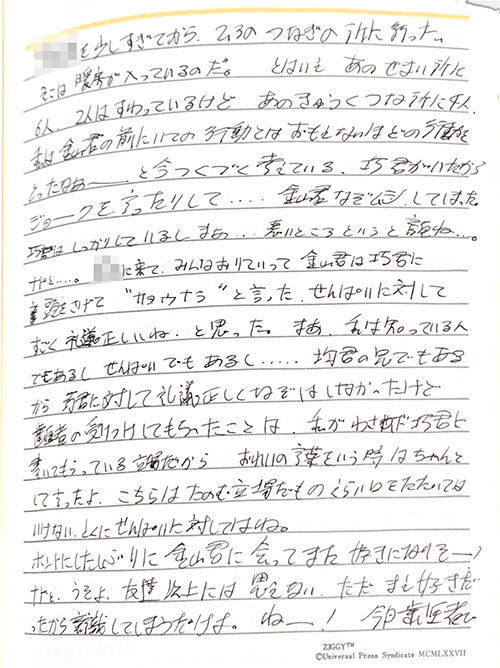 を少しすぎてから、2、3のつなぎの所に行った。
そこは暖房が入っているのだ。とはいえ あのせまい所に
6人、2人はすわっているけど あのきゅうくつな所に4人、
私は金山君の前にいての行動とはおもえないほどの行動を
とったなぁーと今つくづく考えている、巧君がいたから
ジョークを言ったりして‥‥ 金山君なぞムシしてしまった
巧君はしっかりしているしまあ…悪いところというと顔ね…。
だと…。 に来て、みんなおりていって 金山君は巧君に
頭をさげて "サヨウナラ" と言った、せんぱいに対して
すごく礼儀正しいね、と思った。まあ、私は知っている人
でもあるし せんぱいでもあるし‥‥‥ 均君の兄でもある
から 君に対して礼儀正しくなぞはしなかったけど
の受つけしてもらったことは、私がわざわざ巧君に
書いてもらっている立場だから おれいの言葉をいう時はちゃんと
して言ったよ、こちらはたのむ立場だものえらい口をたたいては
いけない、とくにせんぱいに対してはね。
ホントにしたしぶりに金山君に会ってまた好きになりそーっ
だと、うそよ、友達以上には思えない、ただまえ好きだ
ったから意識してしまうだけよ。ねーっ！ 今日
ZIGGY™
©Universal Press Syndicate MCMLXXVII